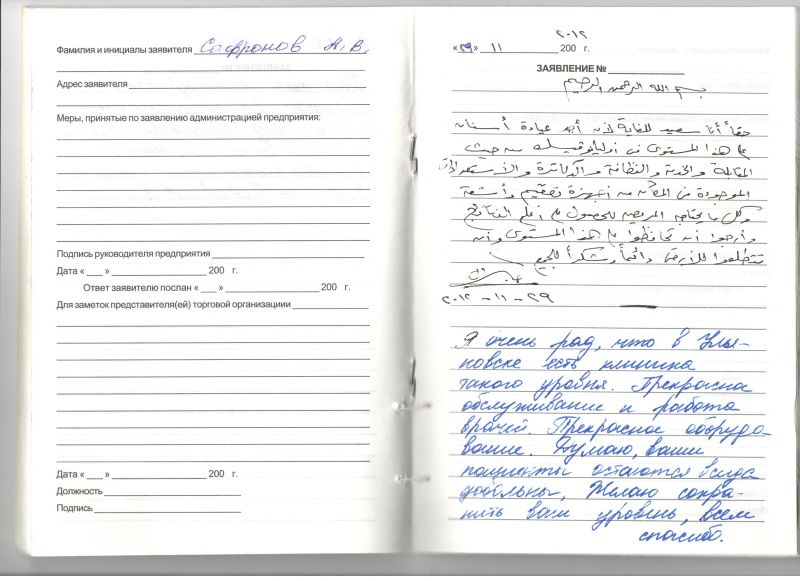 Фамилия и инициалы заявителя Сафронов А.В.
Адрес заявителя
Меры, принятые по заявлению администрацией предприятия:
Подпись руководителя предприятия
Дата « ___ » 200 г.
Ответ заявителю послан « ___ » 200 г.
Для заметок представителя(ей) торговой организациии
Дата « ___ » 200 г.
Должность
Подпись
٢٠١٢
«٢٩» 11 200 г.
ЗАЯВЛЕНИЕ №
بسم الله الرحمن الرحيم
حقاً أنا سعيد للغاية لأن أجد عيادة أسنان
على هذا المستوى في أوليانوفسك من حيث
المقابلة والخدمة والنظافة والدكاترة والاستعدادات
الموجودة في المكان من أجهزة تعقيم وأشعة
وكل ما يحتاجه المريض للحصول على أعلى النتائج
وأرجوا أن تحافظوا على هذا المستوى وأن
تتطلعوا للأرقى دائماً وشكراً للجميع
٢٠١٢ - ١١ - ٢٩
Я очень рад, что в Улья-
новске есть клиника
такого уровня. Прекрасное
обслуживание и работа
врачей. Прекрасное оборудо-
вание. Думаю, ваши
пациенты остаются всегда
довольны, Желаю сохра-
нить ваш уровень, всем
спасибо.